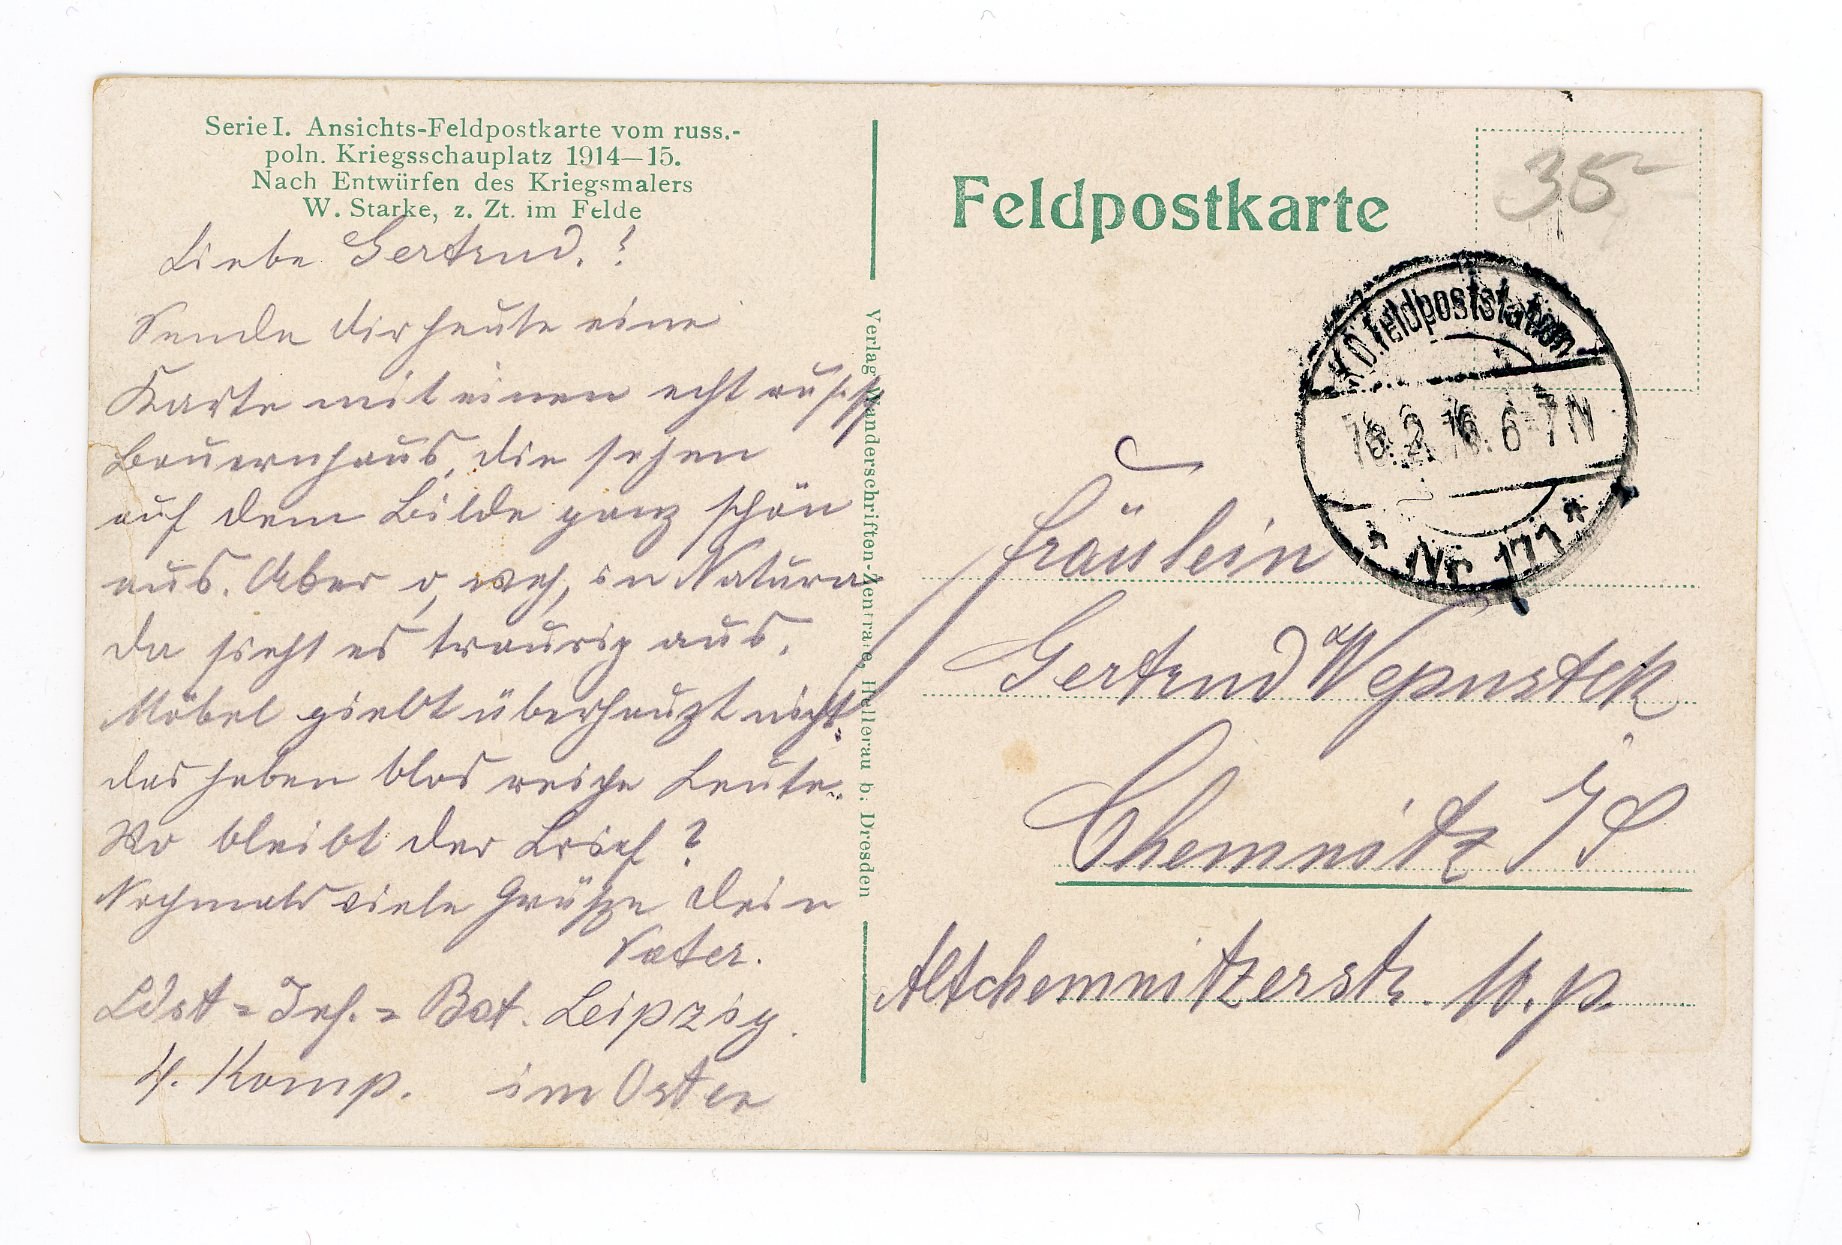 Serie I. Ansichts-Feldpostkarte vom russ.-
poln. Kriegsschauplatz 1914—15.
Nach Entwürfen des Kriegsmalers
W. Starke, z. Zt. im Felde
Liebe Gertrud.!
Sende dir heute eine
Karte mit einen echt russisch
Bauernhaus, die sehen
auf dem Bilde ganz schön
aus. Aber o, weh, in Natura
da sieht es traurig aus.
Möbel giebt überhaupt nicht
das haben blos reiche Leute.
Wo bleibt der Brief?
Nochmals viele Grüße Dein
Vater.
Ldst = Inf. = Bat. Leipzig.
4. Komp. im Osten
Verlag Wanderschriften-Zentrale, Hellerau b. Dresden
Feldpostkarte
35-
K.D. Feldpoststation
2. 16. 6-7N
* Nr 177 *
Fräulein
Gertrud
Chemnitz i/S
Altchemnitzerstr. 10. p.